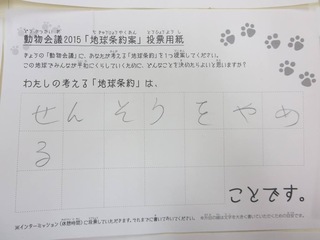 動物会議2015「地球条約案」投票用紙
きょうの「動物会議」に、あなたが考える「地球条約」を1つ提案してください。
この地球でみんなが平和にくらしていくために、どんなことを決めたらよいと思いますか?
わたしの考える「地球条約」は、
せんそうをやめ
る
ことです。
※インターミッション(休憩時間)に投票していただきます。それまでに書いておいてください。